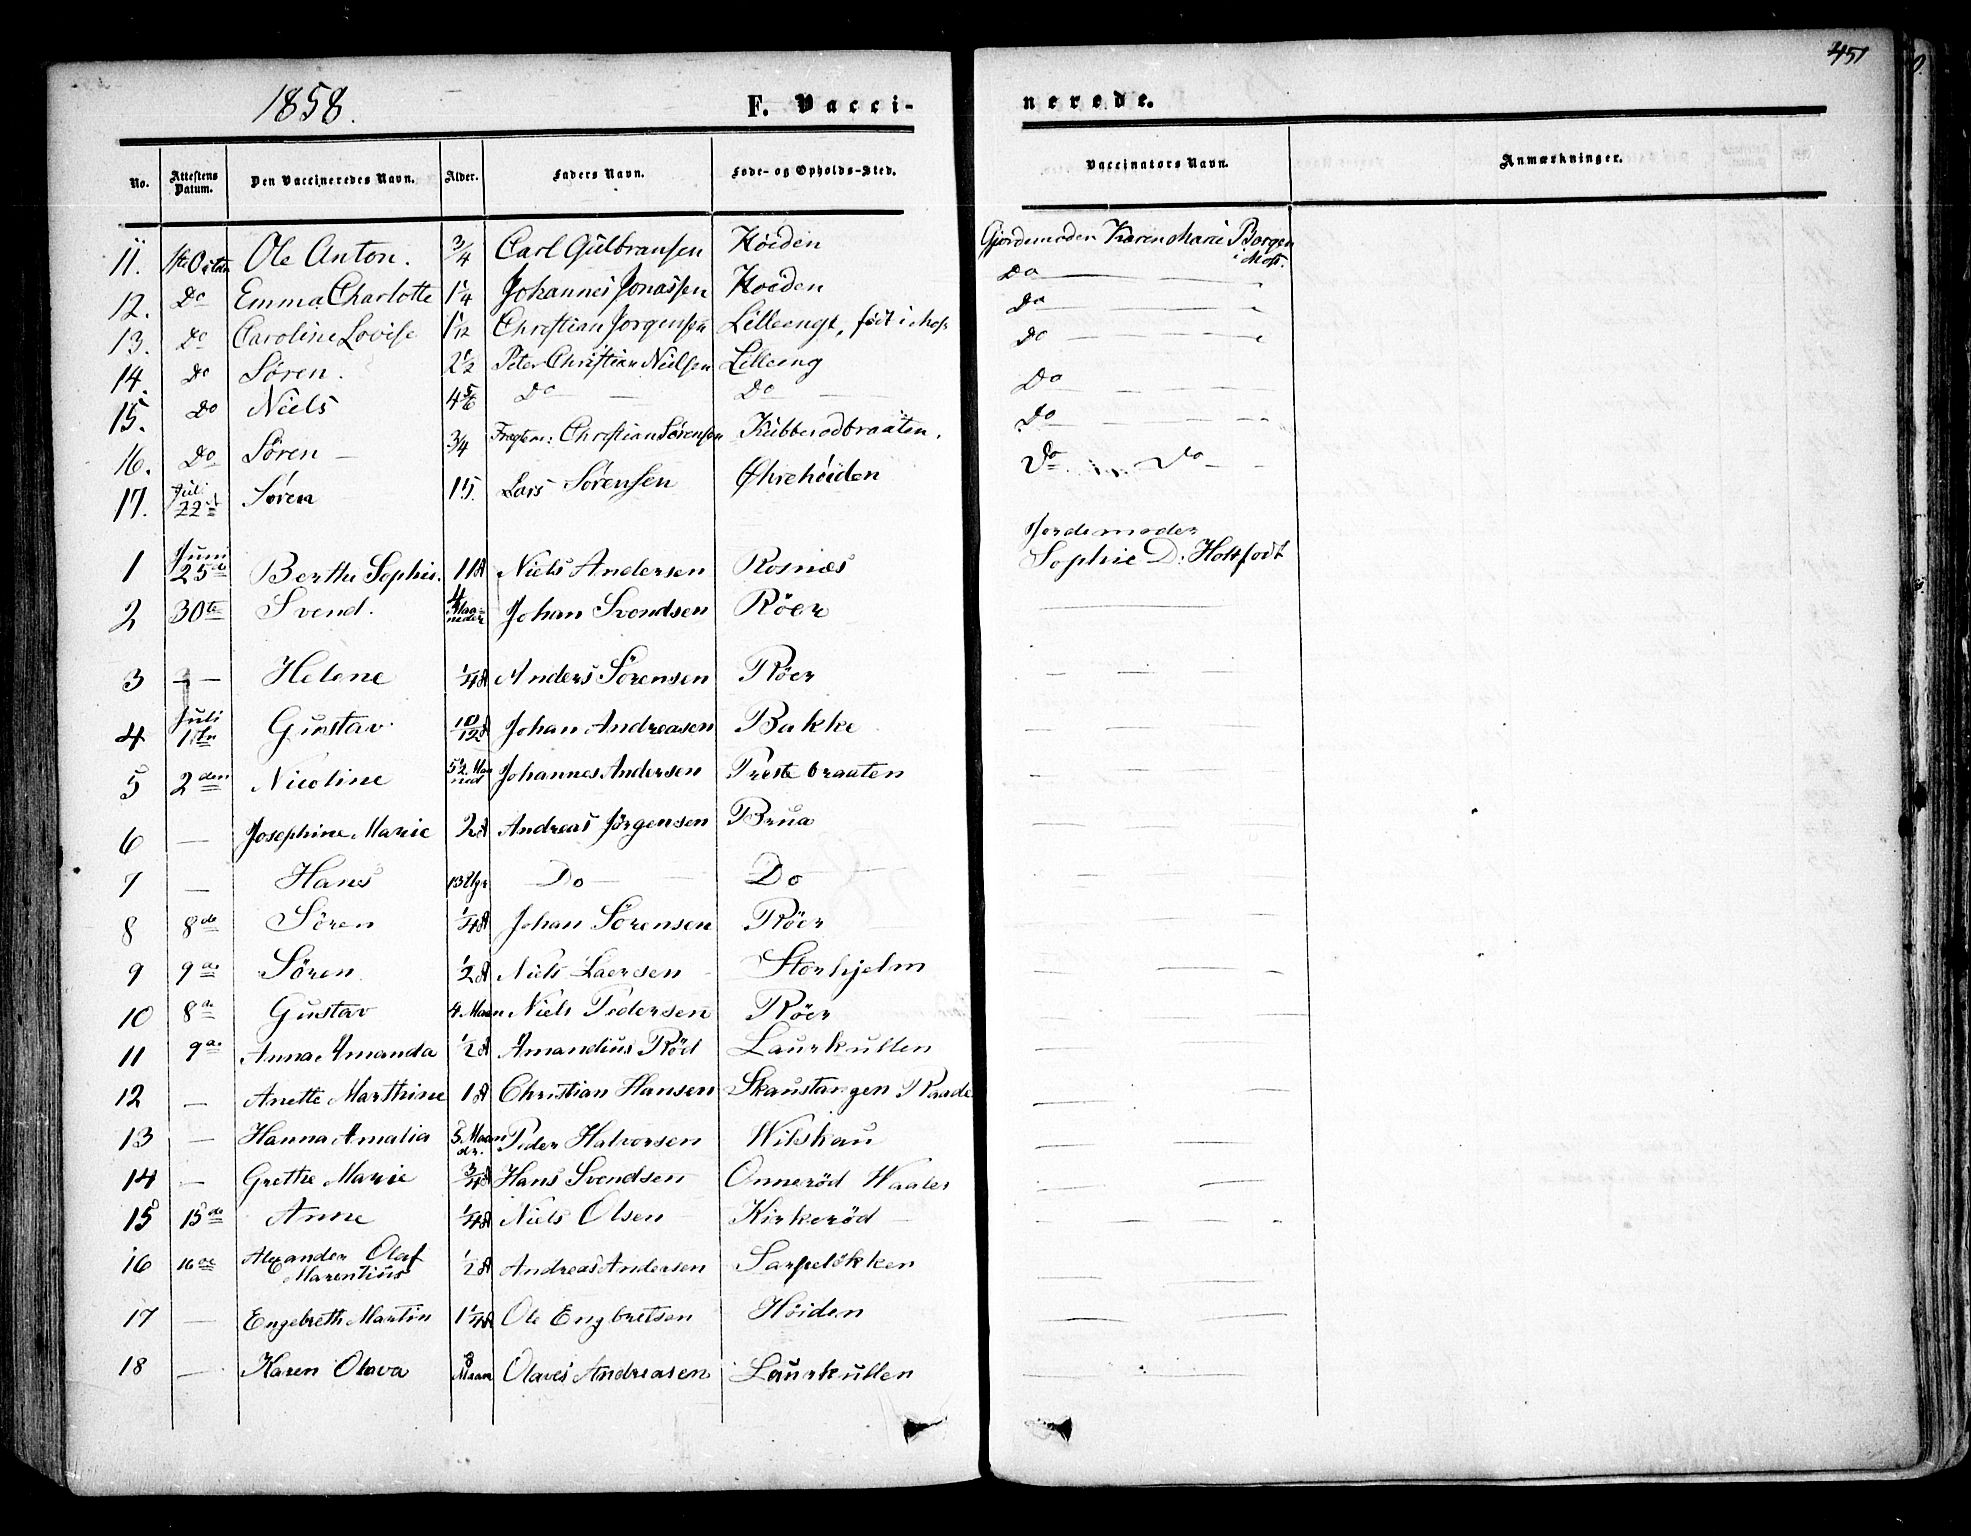 451
1858.
F. Vaccinerede.
No. Attestens Datum. Den Vaccineredes Navn. Alder. Faders Navn. Føde- og Opholds-Sted. Vaccinators Navn. Anmærkninger.
11. Ole Anton. 3/4 Carl Gulbransen Høiden Gjordemoder Karen Marie Borgen i Moss.
12. Do Emma Charlotte 1 1/4 Johannes Jonassen Hoiden Do
13. Do Caroline Lovise 1 1/12 Christian Jorgensen Lilleengt, født i Moss Do
14. Do Søren. 2 1/2 Peter Christian Nielsen Lilleeng Do
15. Do Niels 4 5/6 Do Do Do
16. Do Søren 3/4 Christian Sørensen Kubberødbraaten. Do
17. Juli 22d Søren 15 Lars Sørensen Øhrehøiden Do Do
1 Juni 25de Berthe Sophie. 11 Niels Andersen Rosnæs Jordemoder Sophie D. Holtfodt
2 30te Svend. 4 Maaneder Johan Svendsen Röer
3 — Helene 1/4 Anders Sörensen Röer
4 Juli 1ste Gustav 10/12 Johan Andreasen Bakke
5 2den Nicoline 5 1/2 Maaned Johannes Andersen Prestebraaten
6 — Josephine Marie 2 Andreas Jørgensen Brua
7 — Hans 13 Uger Do Do
8 8de Sören 1/4 Johan Sörensen Röer
9 9de Sören 1/2 Niels Laersen Storhjelm
10 8de Gustav 4 Maan Niels Pedersen Röer
11 9de Anna Amanda 1/2 Amandius Röd Laurkullen
12 — Anette Marthine 1 Christian Hansen Skaustangen Raade
13 — Hanna Amalia 5 Maandr. Peder Halvorsen Wilskau
14 — Grethe Marie 3/4 Hans Svendsen Onneröd Waaler
15 15de Anne 1/4 Niels Olsen Kirkeröd
16 16de Alexander Olaf Marentius 1/2 Andreas Andersen Sarpelökken
17 — Engebreth Martin 1 1/4 Ole Engbretsen Höiden
18 — Karen Olava 8 Maan Olaves Andreasen Laurkullen